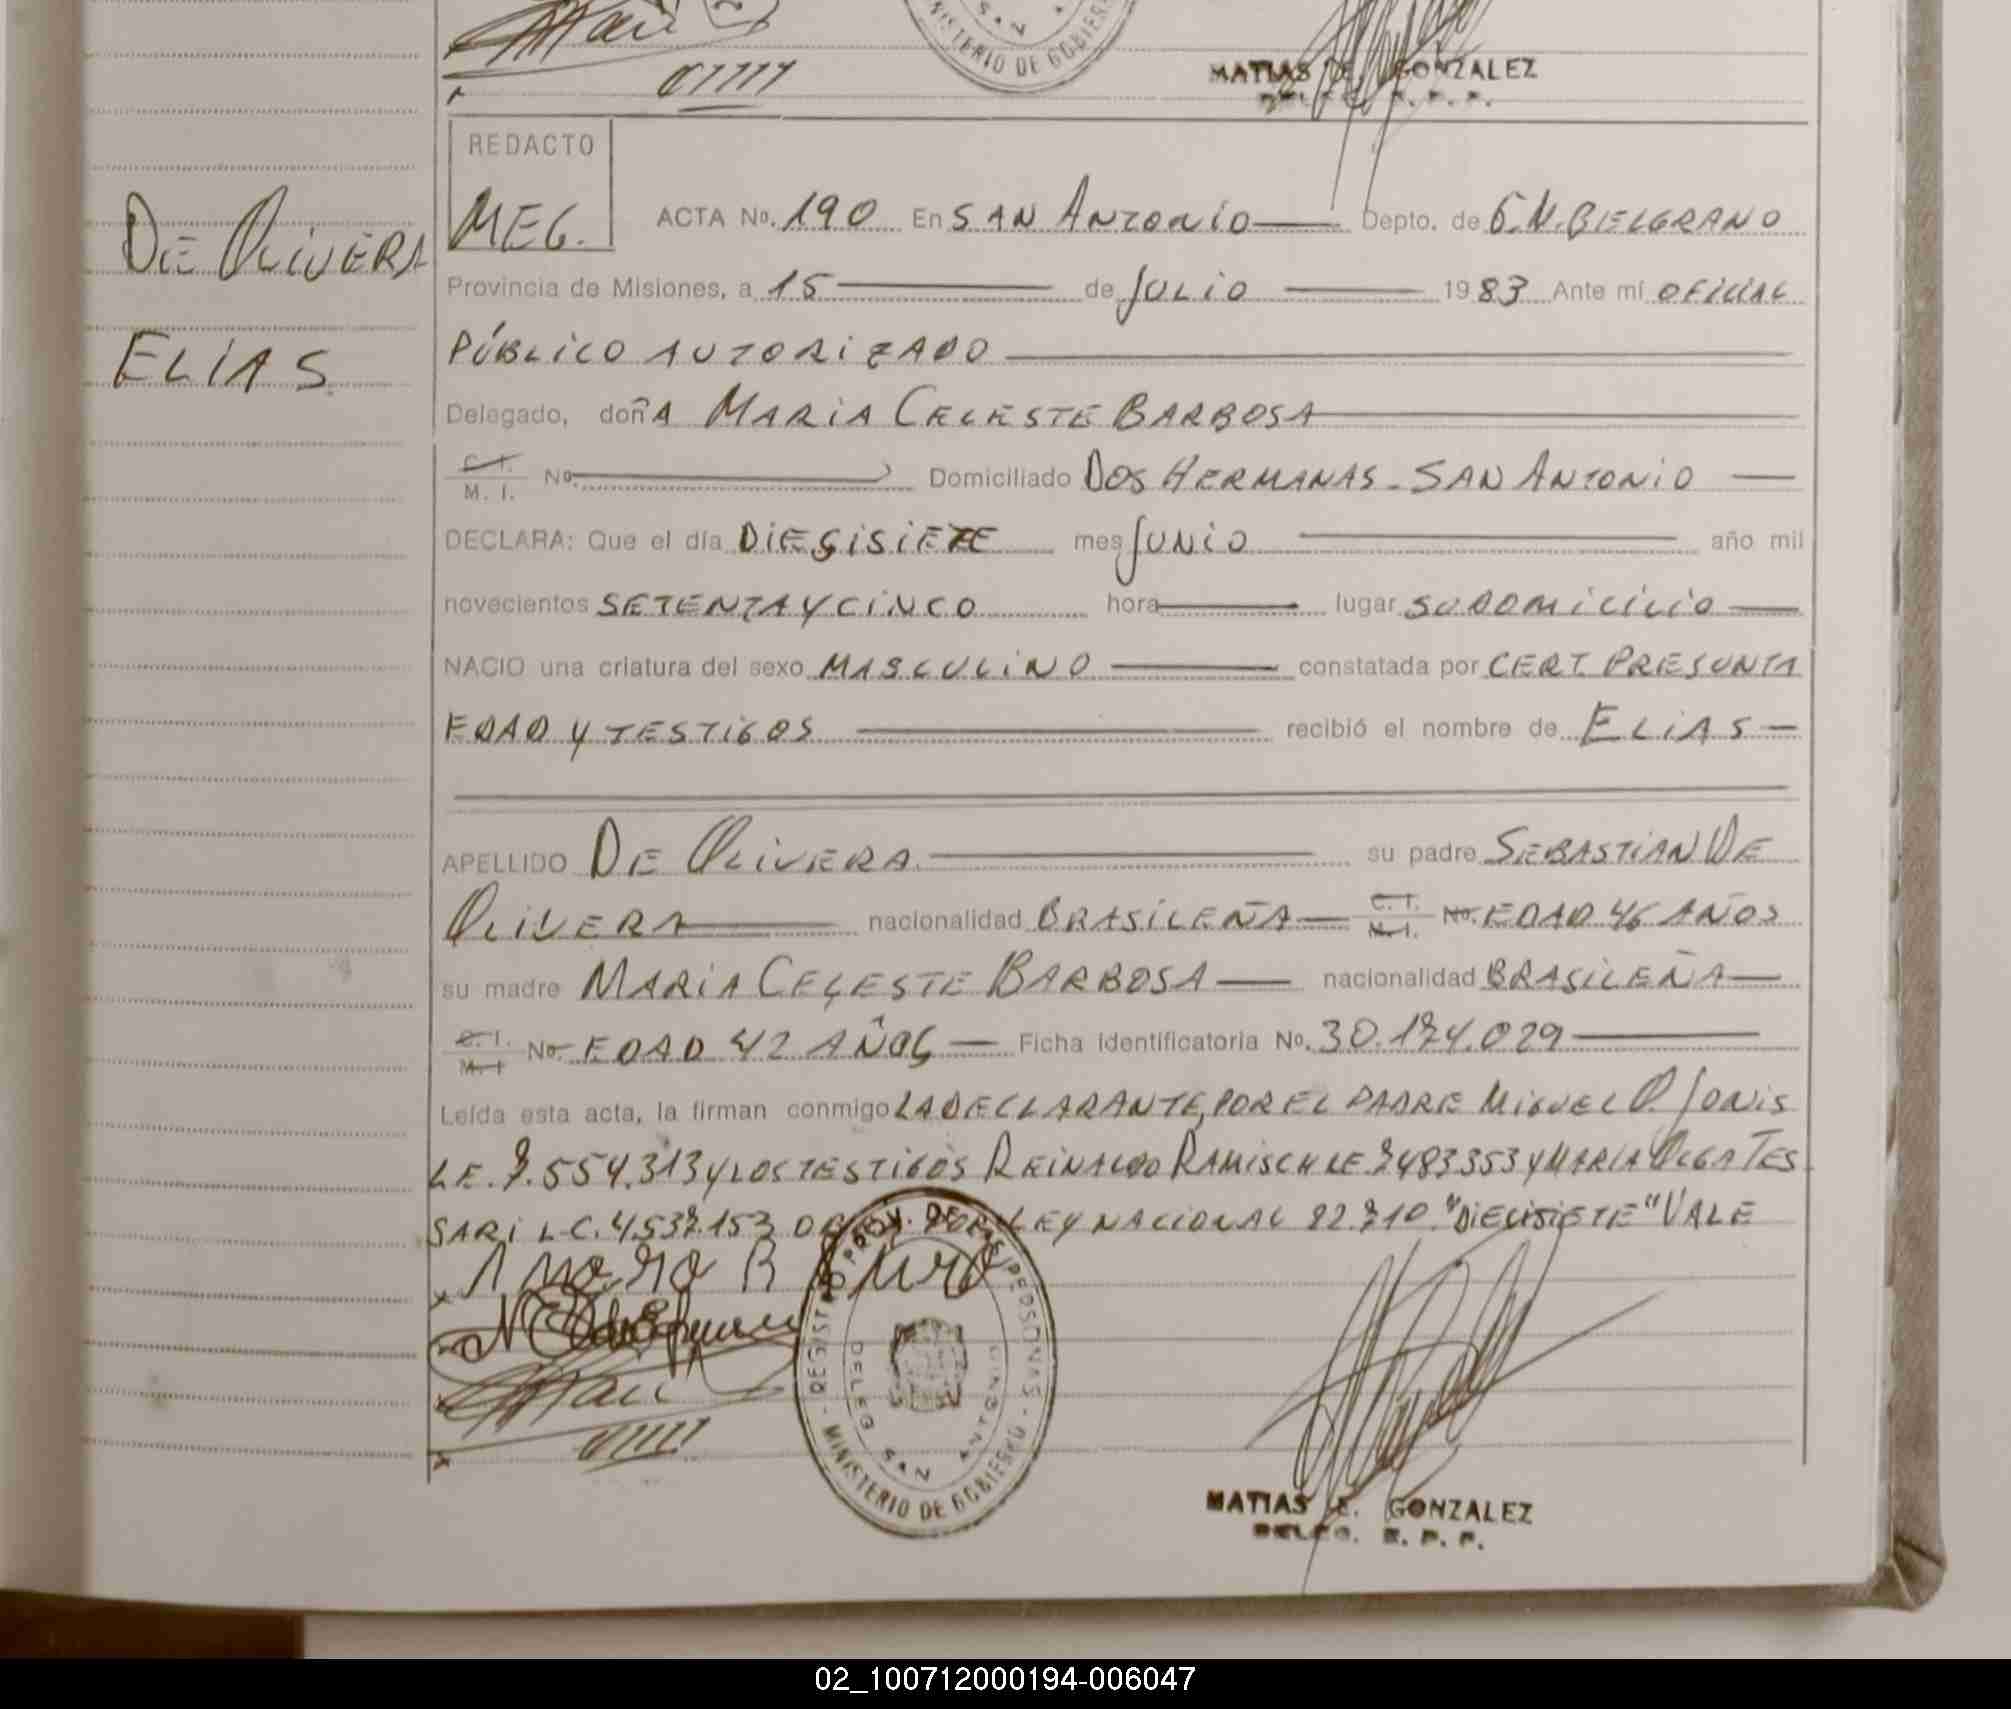 MINISTERIO DE GOBIER
MATIAS E. GONZALEZ
REDACTO
MEG.
ACTA No. 190 En SAN ANTONIO Depto. de G.M. BELGRANO
DE OLIVERA
Provincia de Misiones, a 15 de JULIO 1983 Ante mí OFICIAL
PÚBLICO AUTORIZADO
ELIAS
Delegado, doñA MARIA CELESTE BARBOSA
C. I. / M. I. No. Domiciliado DOS HERMANAS - SAN ANTONIO
DECLARA: Que el día DIESISIETE mes JUNIO año mil
novecientos SETENTA Y CINCO hora lugar SU DOMICILIO
NACIO una criatura del sexo MASCULINO constatada por CERT. PRESUNTA
EDAD Y TESTIGOS recibió el nombre de ELIAS
APELLIDO DE OLIVERA su padre SEBASTIAN DE
OLIVERA nacionalidad BRASILEÑA C. I. / M. I. No. EDAD 46 AÑOS
su madre MARIA CELESTE BARBOSA nacionalidad BRASILEÑA
C. I. / M. I. No. EDAD 42 AÑOS Ficha identificatoria No. 30.174.029
Leída esta acta, la firman conmigo LA DECLARANTE, POR EL PADRE MIGUEL O. JONIS
L.E. 7.554.313 Y LOS TESTIGOS REINALDO RAMISCH LE 7483353 Y MARIA OLGA TES
SARI L.C. 4.537.153 POR LEY NACIONAL 22.710. "DIECISIETE" VALE
REGISTRO PROV. DE LAS PERSONAS
DELEG. SAN ANTONIO
MINISTERIO DE GOBIERNO
MATIAS E. GONZALEZ
DELEG. R. P. P.
02_100712000194-006047